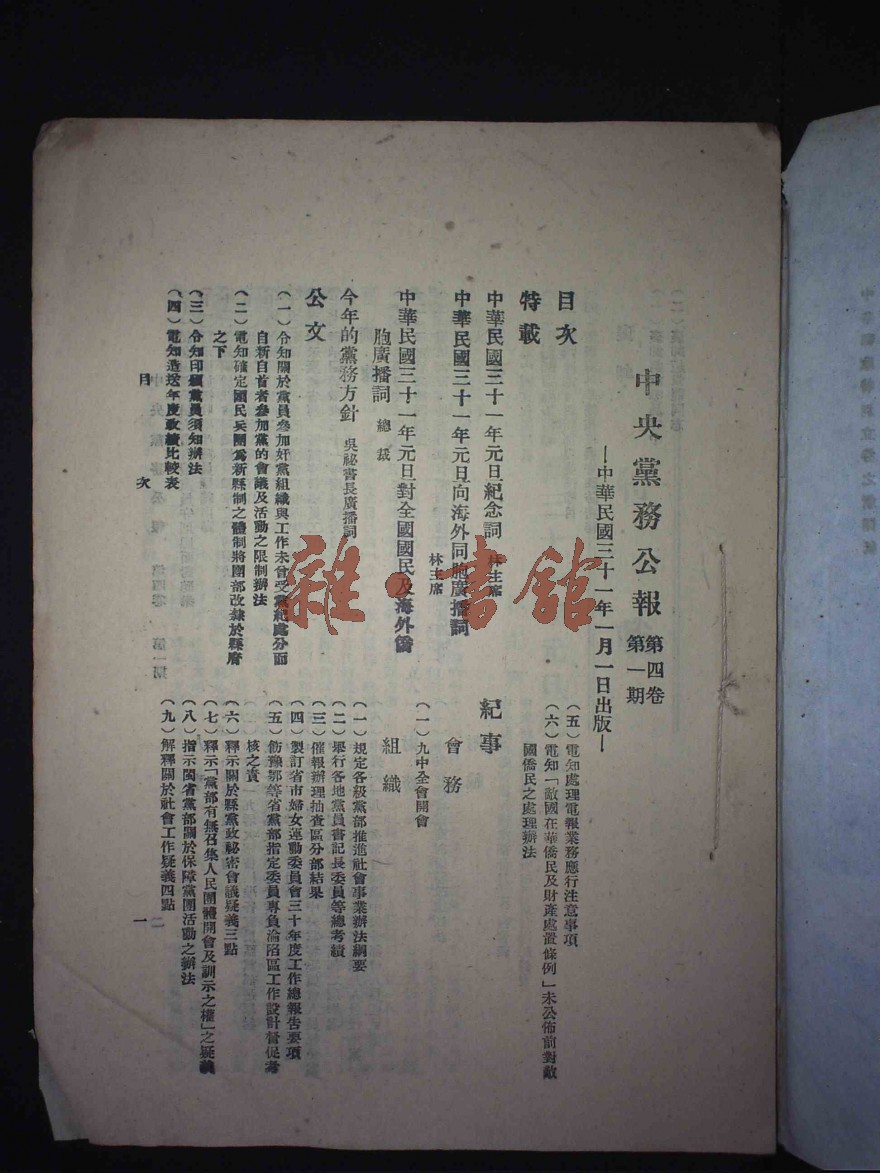 中央黨務公報 第四卷 第一期
—中華民國三十一年一月一日出版—
目次
特載
中華民國三十一年元旦紀念詞 林主席
中華民國三十一年元旦向海外同胞廣播詞 林主席
中華民國三十一年元旦對全國國民及海外僑
胞廣播詞 總裁
今年的黨務方針 吳祕書長廣播詞
公文
（一）令知關於黨員參加奸黨組織與工作未曾受黨紀處分而
自新自首者參加黨的會議及活動之限制辦法
（二）電知確定國民兵團爲新縣制之體制將團部改隸於縣府
之下
（三）令知印頒黨員須知辦法
（四）電知造送年度政績比較表
（五）電知處理電報業務應行注意事項
（六）電知「敵國在華僑民及財產處置條例」未公佈前對敵
國僑民之處理辦法
紀事
會務
（一）九中全會開會
組織
（一）規定各級黨部推進社會事業辦法綱要
（二）舉行各地黨員書記長委員等總考績
（三）催報辦理抽查區分部結果
（四）製訂省市婦女運動委員會三十年度工作總報告要項
（五）飭豫鄂等省黨部指定委員專負淪陷區工作設計督促考
核之責
（六）釋示關於縣黨政祕密會議疑義三點
（七）釋示「黨部有無召集人民團體開會及訓示之權」之疑義
（八）指示閩省黨部關於保障黨團活動之辦法
（九）解釋關於社會工作疑義四點
目次
一
雜·書館